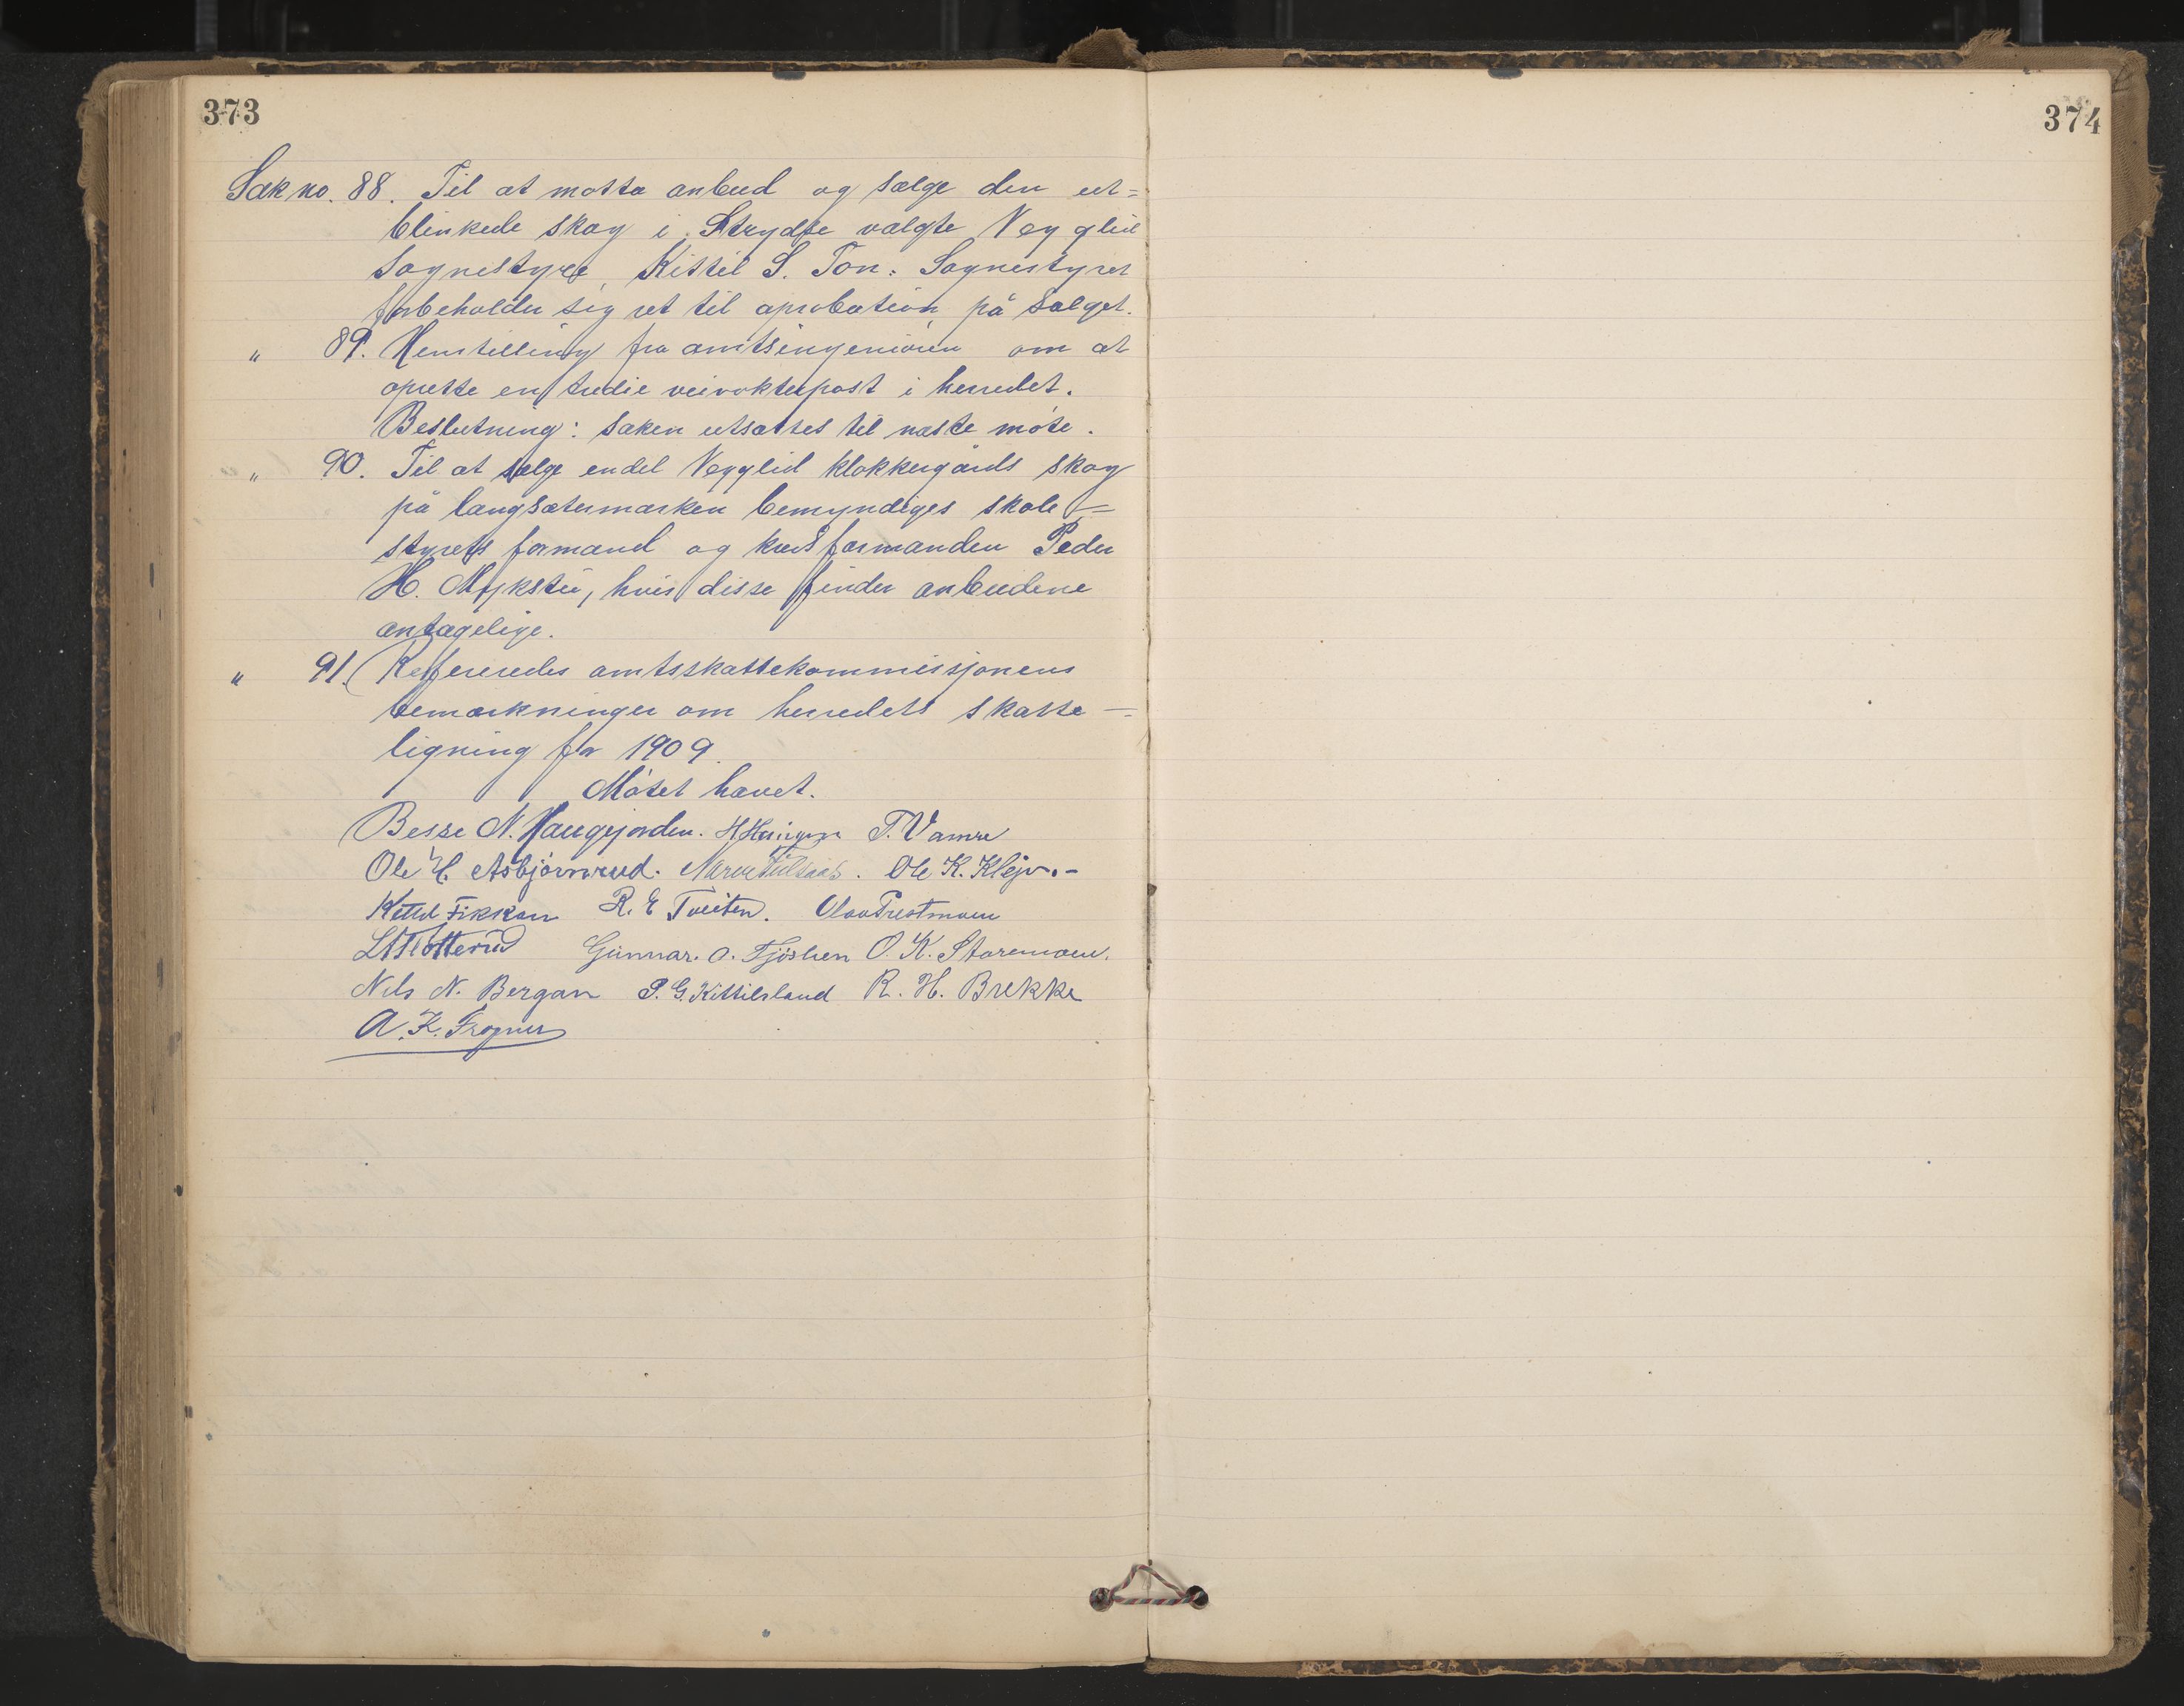 373
374
Sak no. 88. Til at motta anbud og sælge den ut=
blinkede skog i Strydte valgte Vegglid
sognestyre Kittil S. Ton. Sognestyret
forbeholder sig ret til aprobation på salget.
" 89. Henstilling fra amtsingeniören om at
oprette en tredie veivokterpost i herredet.
Beslutning: Saken utsattes til næste möte.
" 90. Til at sælge endel Vegglid klokkergårds skog
på langsætermarken bemyndiges skole=
styrets formand og formanden Peder
H. Mykstu, hvis disse finder anbudene
antagelige.
" 91. Refereredes amtsskattekommissjonens
bemærkninger om herredets skatte-
ligning for 1909.
Mötet hævet.
Besse N. Haugejorden. T. Vamre
Ole H. Asbjörnrud. Ole K. Klejv.-
Kittil Fikkan R. E Tveiten. Olav Prestmoen
Gunnar. O. Fjösben O. K. Storemoen.
Nils N. Bergan P. G. Kittilsland R. H. Brekke
A. K. Frogner